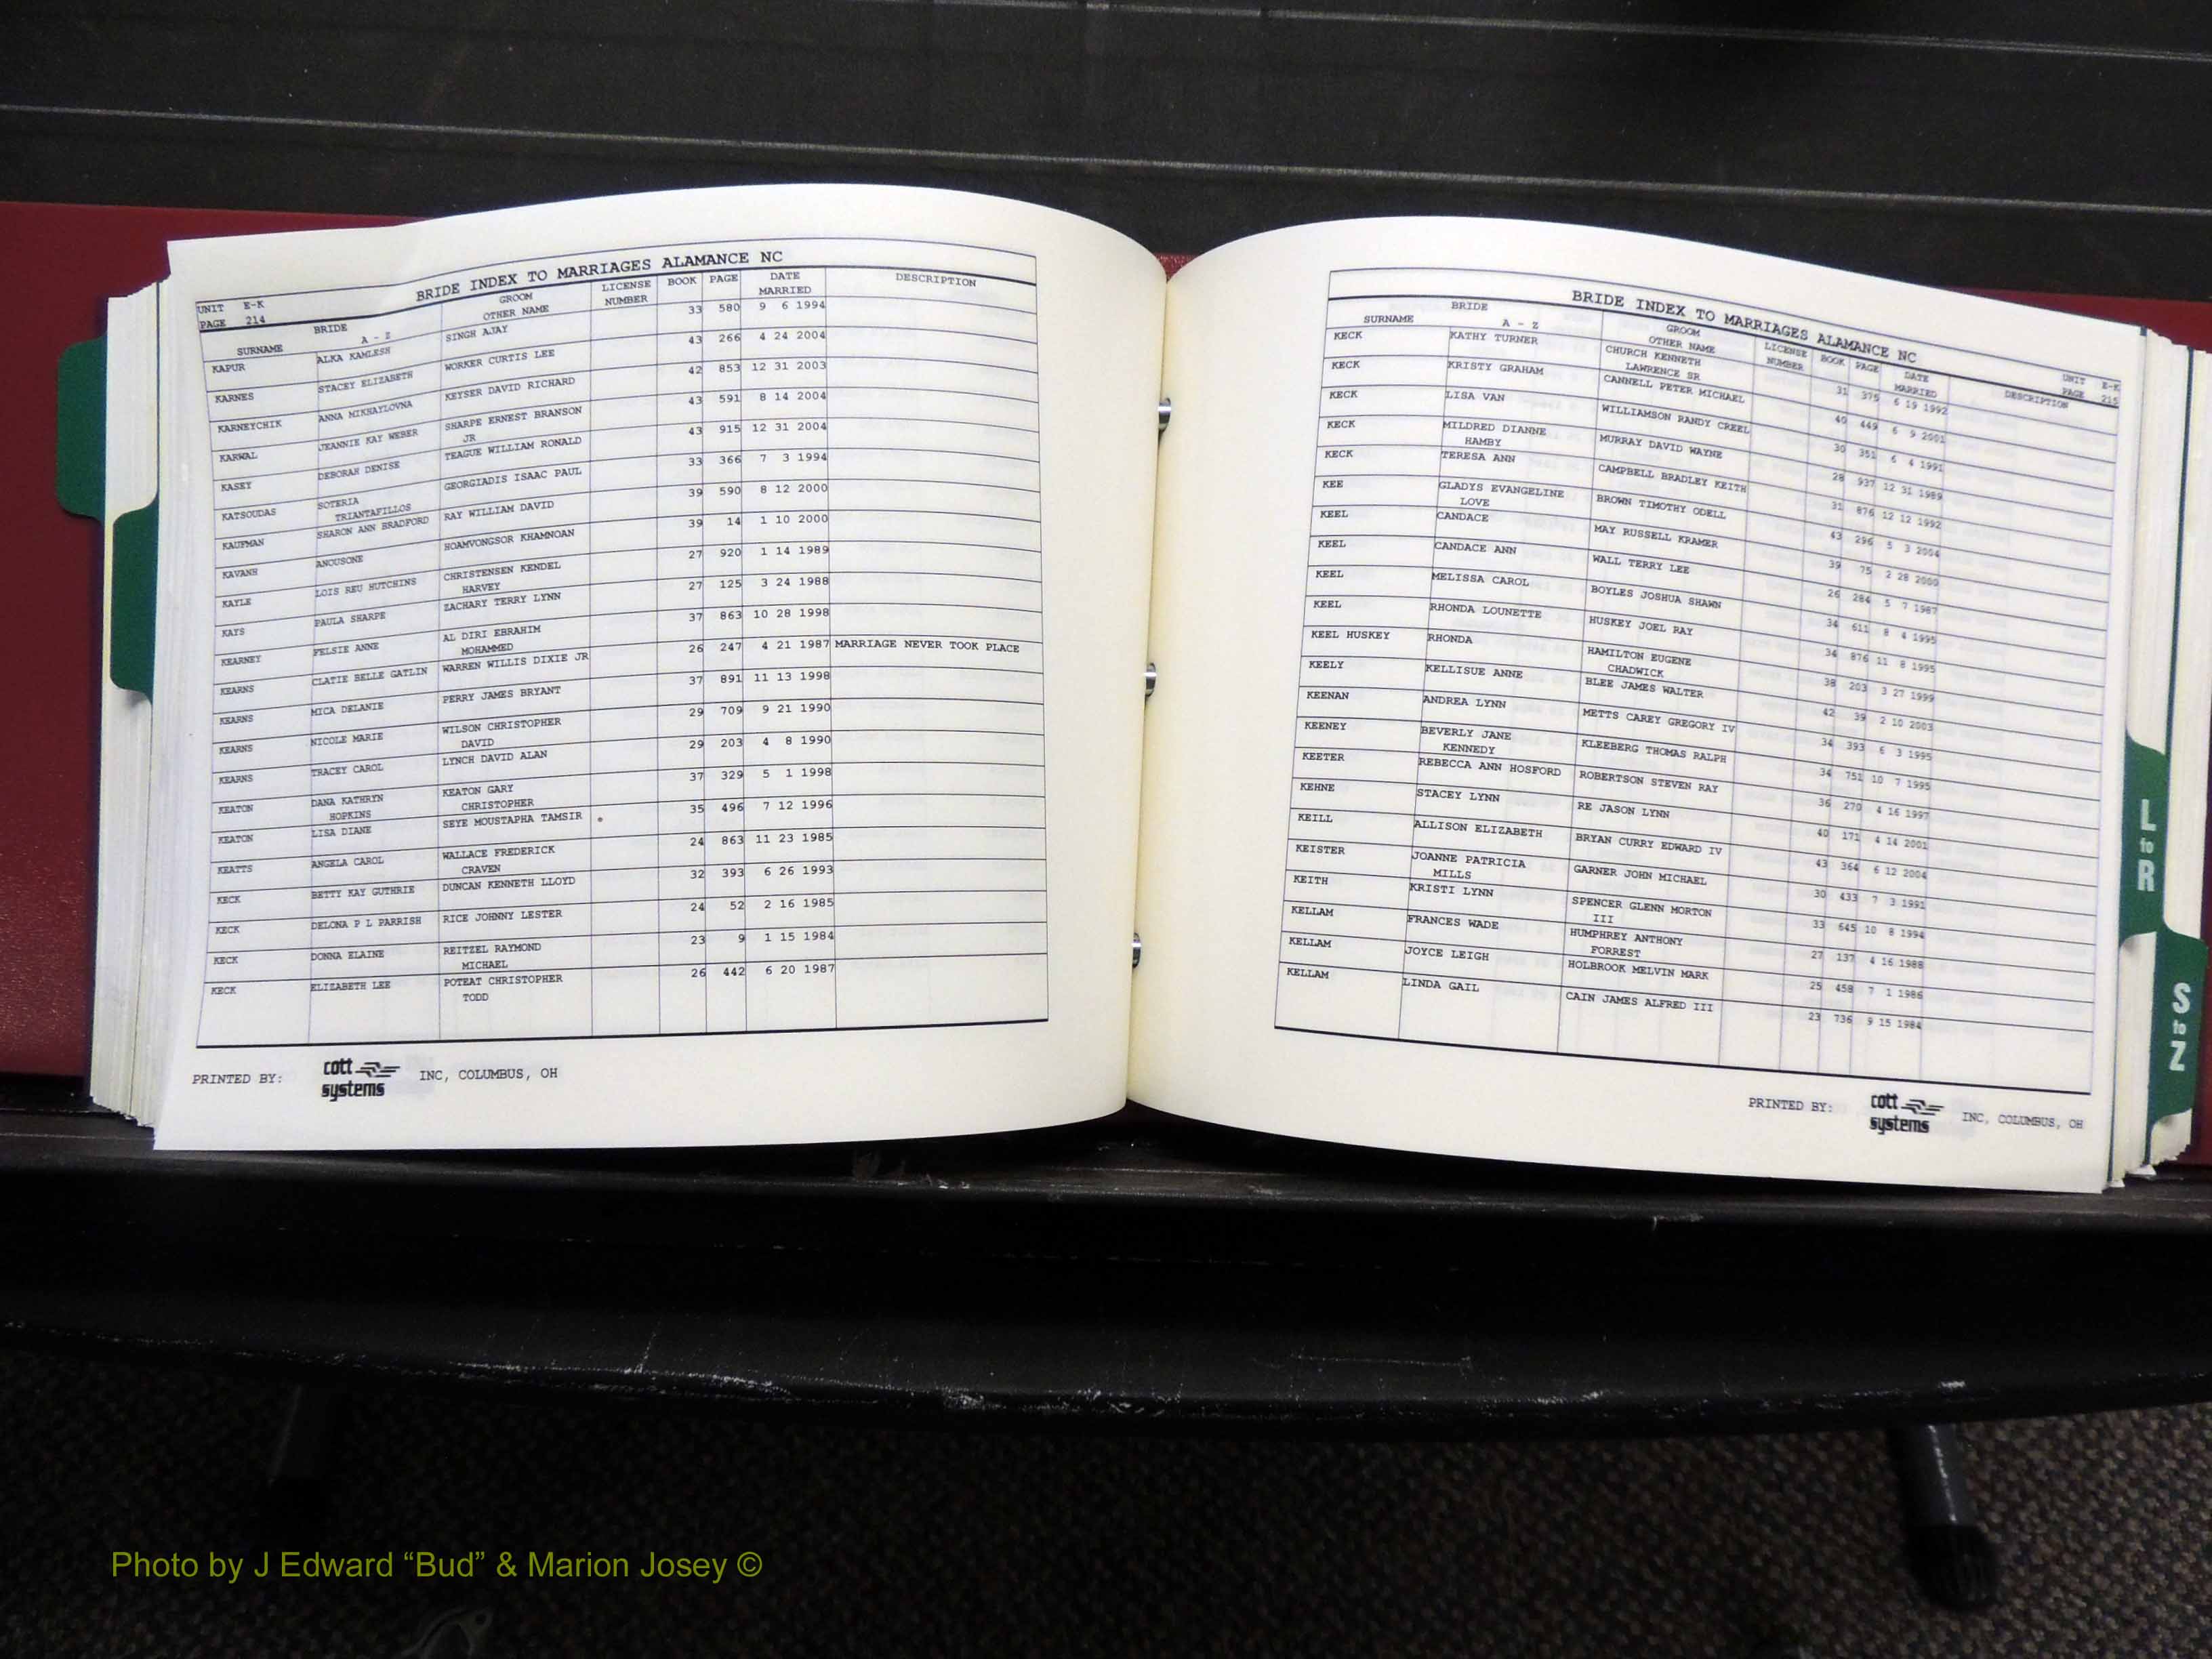 UNIT E-K
PAGE 214
BRIDE INDEX TO MARRIAGES ALAMANCE NC
SURNAME BRIDE A - Z GROOM OTHER NAME LICENSE NUMBER BOOK PAGE DATE MARRIED DESCRIPTION
KAPUR ALKA KAMLESH SINGH AJAY 33 580 9 6 1994
KARNES STACEY ELIZABETH WORKER CURTIS LEE 43 266 4 24 2004
KARNEYCHIK ANNA MIKHAYLOVNA KEYSER DAVID RICHARD 42 853 12 31 2003
KARWAL JEANNIE KAY WEBER SHARPE ERNEST BRANSON 43 591 8 14 2004
JR
KASEY DEBORAH DENISE TEAGUE WILLIAM RONALD 43 915 12 31 2004
KATSOUDAS SOTERIA GEORGIADIS ISAAC PAUL 33 366 7 3 1994
TRIANTAFILLOS
KAUFMAN SHARON ANN BRADFORD RAY WILLIAM DAVID 39 590 8 12 2000
KAVANH ANOUSONE HOAMVONGSOR KHAMNOAN 39 14 1 10 2000
KAYLE LOIS REU HUTCHINS CHRISTENSEN KENDEL 27 920 1 14 1989
HARVEY
KAYS PAULA SHARPE ZACHARY TERRY LYNN 27 125 3 24 1988
KEARNEY FELSIE ANNE AL DIRI EBRAHIM 37 863 10 28 1998
MOHAMMED
KEARNS CLATIE BELLE GATLIN WARREN WILLIS DIXIE JR 26 247 4 21 1987 MARRIAGE NEVER TOOK PLACE
KEARNS MICA DELANIE PERRY JAMES BRYANT 37 891 11 13 1998
KEARNS NICOLE MARIE WILSON CHRISTOPHER 29 709 9 21 1990
DAVID
KEARNS TRACEY CAROL LYNCH DAVID ALAN 29 203 4 8 1990
KEATON DANA KATHRYN KEATON GARY 37 329 5 1 1998
HOPKINS CHRISTOPHER
KEATON LISA DIANE SEYE MOUSTAPHA TAMSIR 35 496 7 12 1996
KEATTS ANGELA CAROL WALLACE FREDERICK 24 863 11 23 1985
CRAVEN
KECK BETTY KAY GUTHRIE DUNCAN KENNETH LLOYD 32 393 6 26 1993
KECK DELONA P L PARRISH RICE JOHNNY LESTER 24 52 2 16 1985
KECK DONNA ELAINE REITZEL RAYMOND 23 9 1 15 1984
MICHAEL
KECK ELIZABETH LEE POTEAT CHRISTOPHER 26 442 6 20 1987
TODD
PRINTED BY: cott systems INC, COLUMBUS, OH
BRIDE INDEX TO MARRIAGES ALAMANCE NC
UNIT E-K
PAGE 215
SURNAME BRIDE A - Z GROOM OTHER NAME LICENSE NUMBER BOOK PAGE DATE MARRIED DESCRIPTION
KECK KATHY TURNER CHURCH KENNETH 31 375 6 19 1992
LAWRENCE SR
KECK KRISTY GRAHAM CANNELL PETER MICHAEL 40 449 6 9 2001
KECK LISA VAN WILLIAMSON RANDY CREEL 30 351 6 4 1991
KECK MILDRED DIANNE MURRAY DAVID WAYNE 28 937 12 31 1989
HAMBY
KECK TERESA ANN CAMPBELL BRADLEY KEITH 31 876 12 12 1992
KEE GLADYS EVANGELINE BROWN TIMOTHY ODELL 43 296 5 3 2004
LOVE
KEEL CANDACE MAY RUSSELL KRAMER 39 75 2 28 2000
KEEL CANDACE ANN WALL TERRY LEE 26 284 5 7 1987
KEEL MELISSA CAROL BOYLES JOSHUA SHAWN 34 611 8 4 1995
KEEL RHONDA LOUNETTE HUSKEY JOEL RAY 34 876 11 8 1995
KEEL HUSKEY RHONDA HAMILTON EUGENE 38 203 3 27 1999
CHADWICK
KEELY KELLISUE ANNE BLEE JAMES WALTER 42 39 2 10 2003
KEENAN ANDREA LYNN METTS CAREY GREGORY IV 34 393 6 3 1995
KEENEY BEVERLY JANE KLEEBERG THOMAS RALPH 34 751 10 7 1995
KENNEDY
KEETER REBECCA ANN HOSFORD ROBERTSON STEVEN RAY 36 270 4 16 1997
KEHNE STACEY LYNN RE JASON LYNN 40 171 4 14 2001
KEILL ALLISON ELIZABETH BRYAN CURRY EDWARD IV 43 364 6 12 2004
KEISTER JOANNE PATRICIA GARNER JOHN MICHAEL 30 433 7 3 1991
MILLS
KEITH KRISTI LYNN SPENCER GLENN MORTON 33 645 10 8 1994
III
KELLAM FRANCES WADE HUMPHREY ANTHONY 27 137 4 16 1988
FORREST
KELLAM JOYCE LEIGH HOLBROOK MELVIN MARK 25 458 7 1 1986
KELLAM LINDA GAIL CAIN JAMES ALFRED III 23 736 9 15 1984
PRINTED BY: cott systems INC, COLUMBUS, OH
L to R
S to Z
Photo by J Edward “Bud” & Marion Josey ©